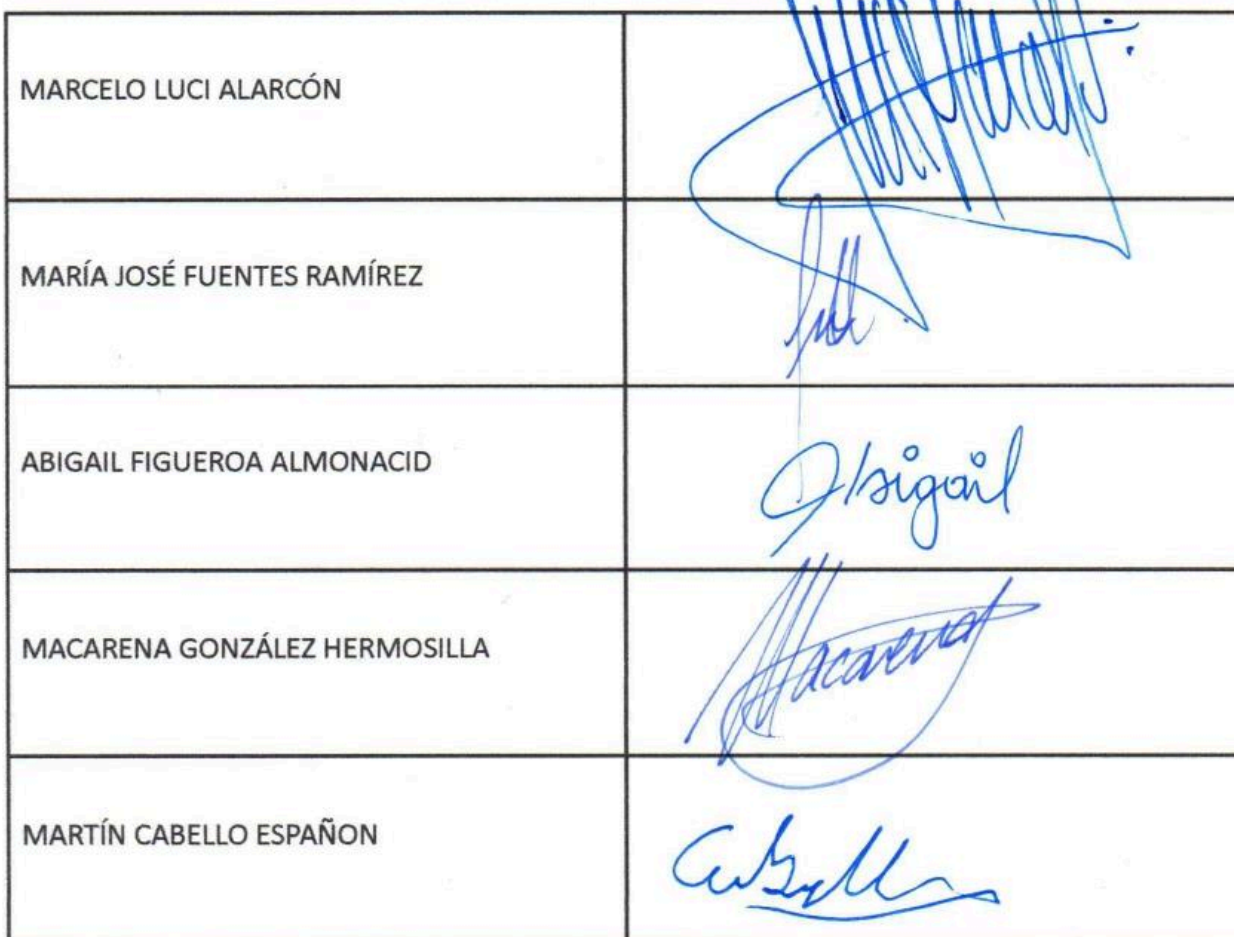 MARCELO LUCI ALARCÓN
MARÍA JOSÉ FUENTES RAMÍREZ
ABIGAIL FIGUEROA ALMONACID
Abigail
MACARENA GONZÁLEZ HERMOSILLA
Macarena
MARTÍN CABELLO ESPAÑON
Cabello